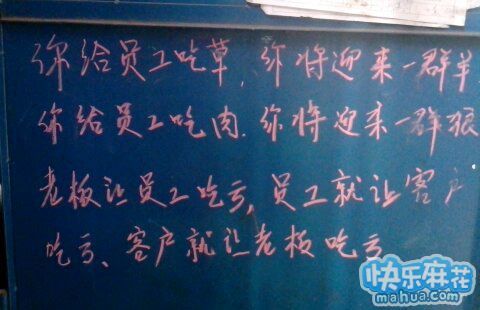 你给员工吃草,你将迎来一群羊
你给员工吃肉.你将迎来一群狼
老板让员工吃亏,员工就让客户
吃亏、客户就让老板吃亏
快乐麻花
mahua.com